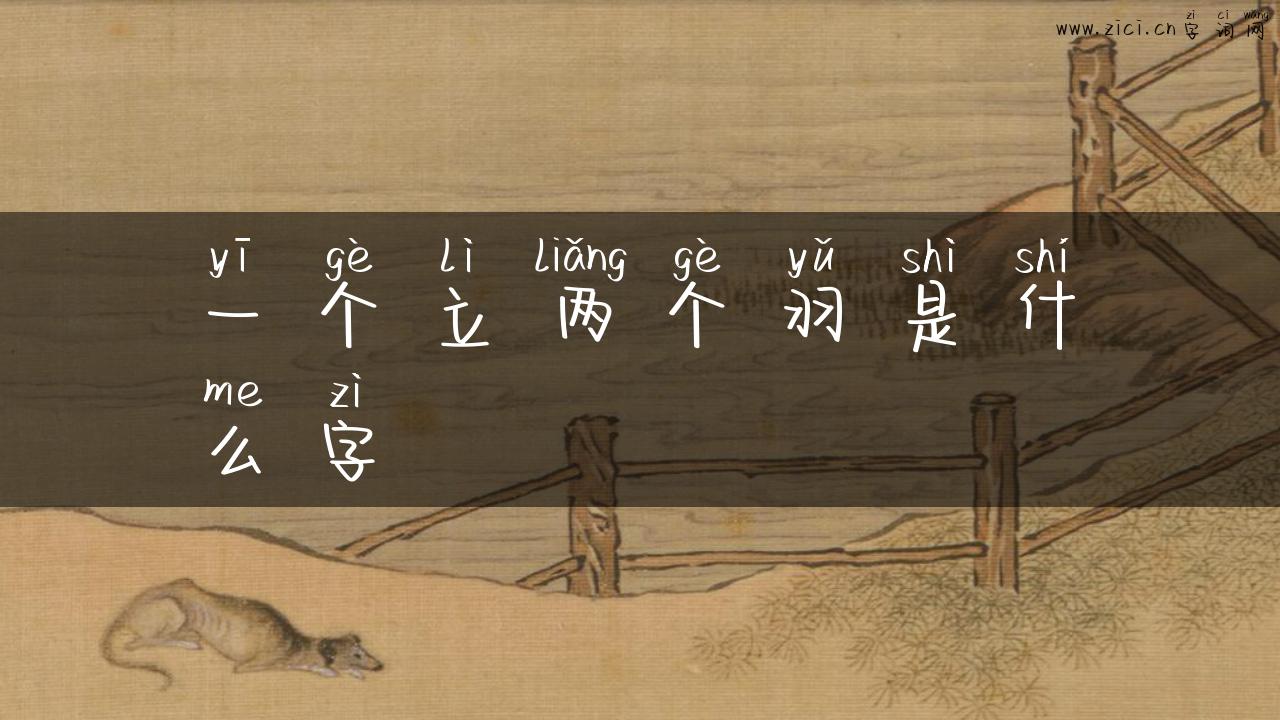 zi ci wang
www.zici.cn 字词网
yī gè lì liǎng gè yǔ shì shí
一个立两个羽是什
me zì
么字